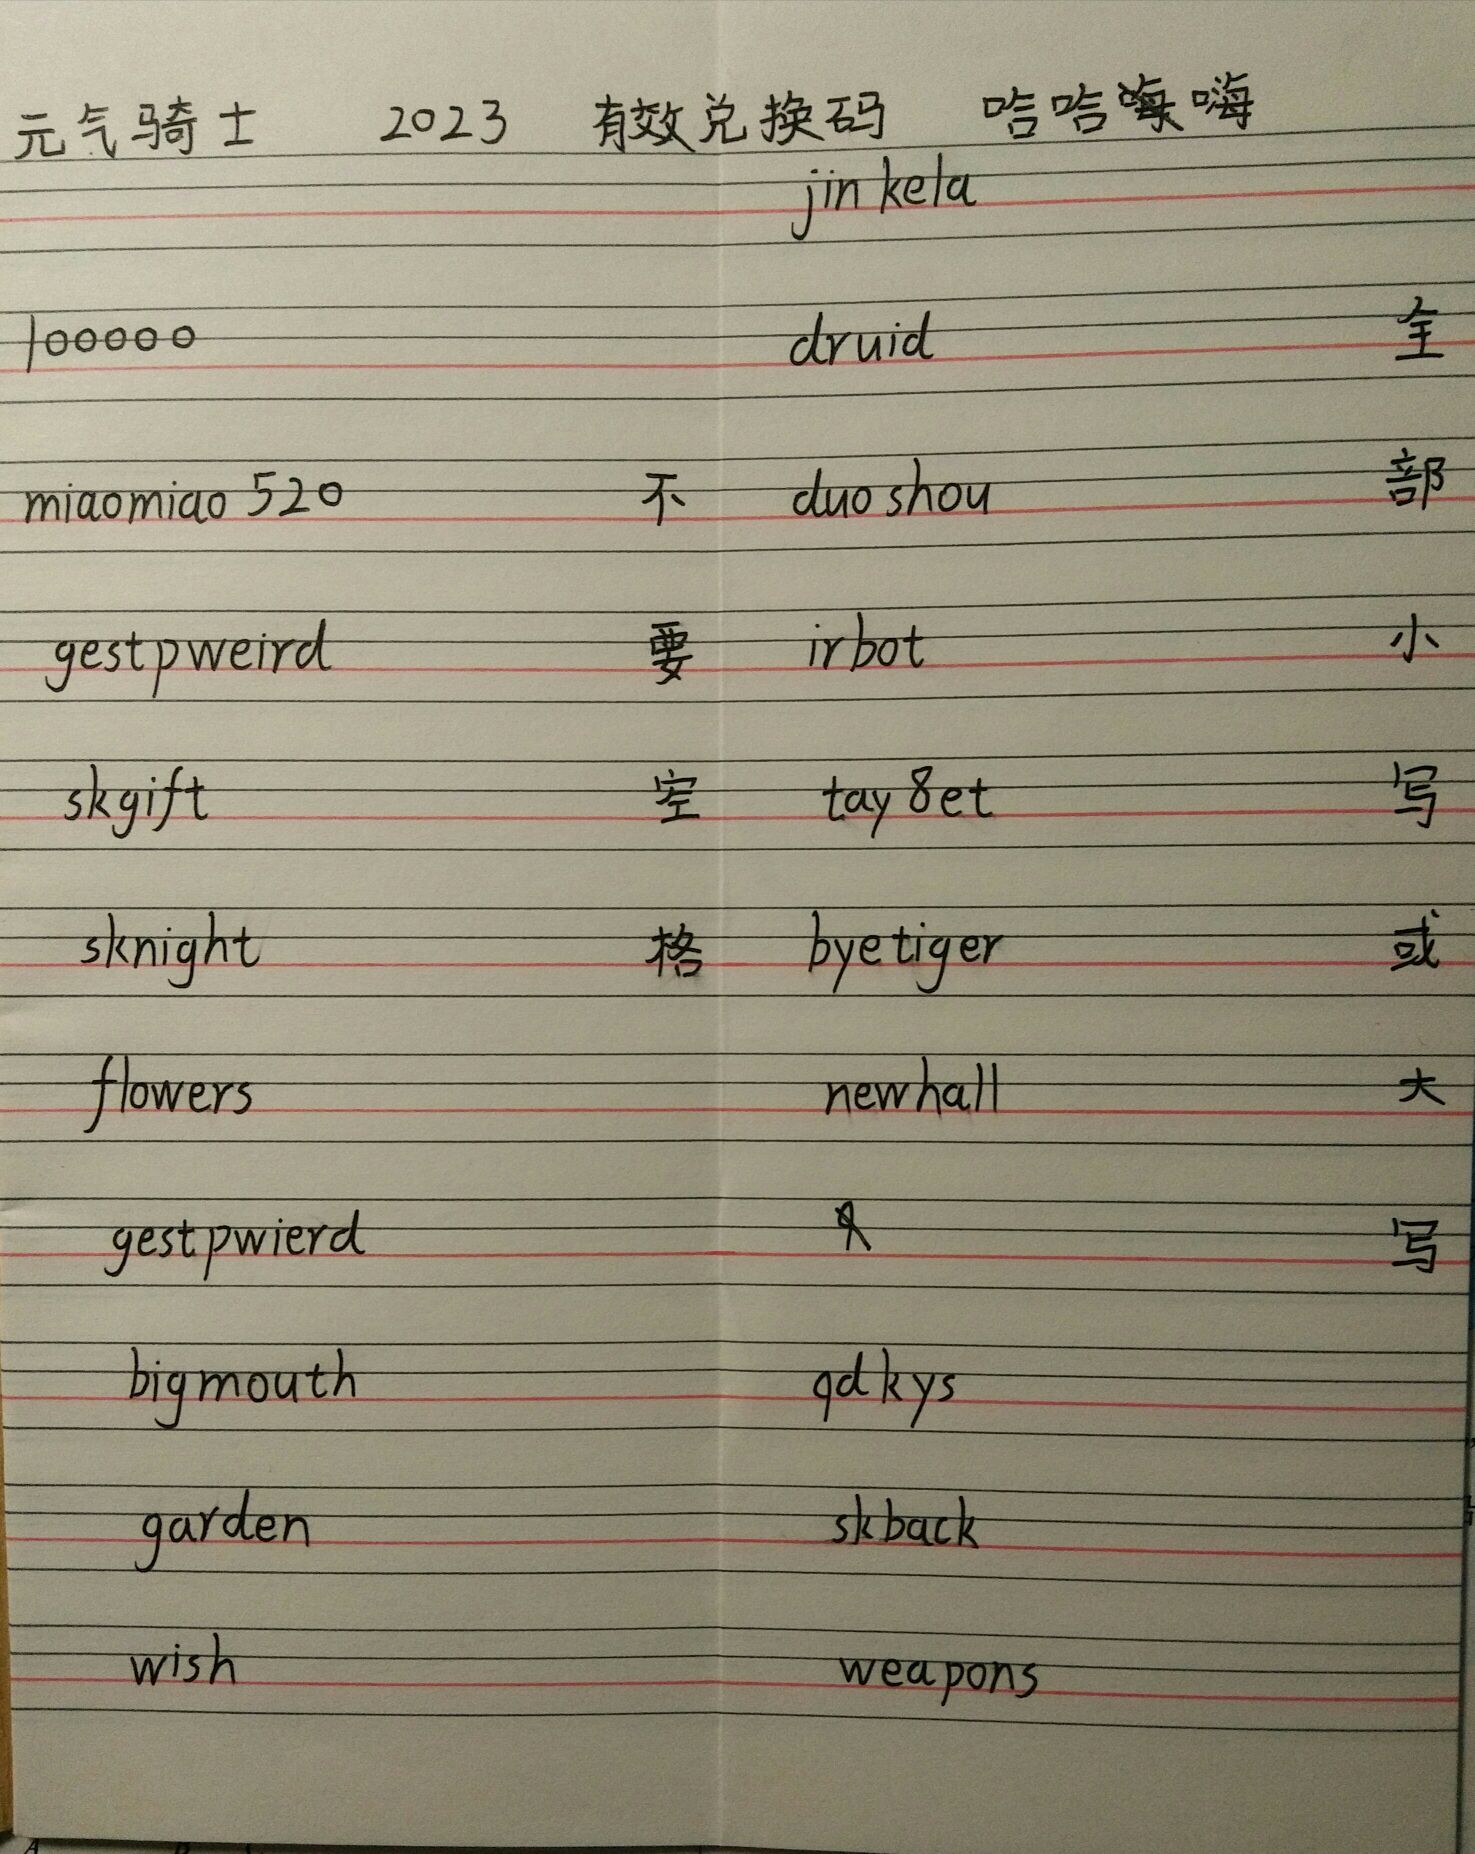 元气骑士 2023 有效兑换码 哈哈嗨嗨
jinkela
100000 druid 全
miaomiao520 不 duoshou 部
gestpweird 要 irbot 小
skgift 空 tay8et 写
sknight 格 byetiger 或
flowers newhall 大
gestpwierd 写
bigmouth qdkys
garden skback
wish weapons